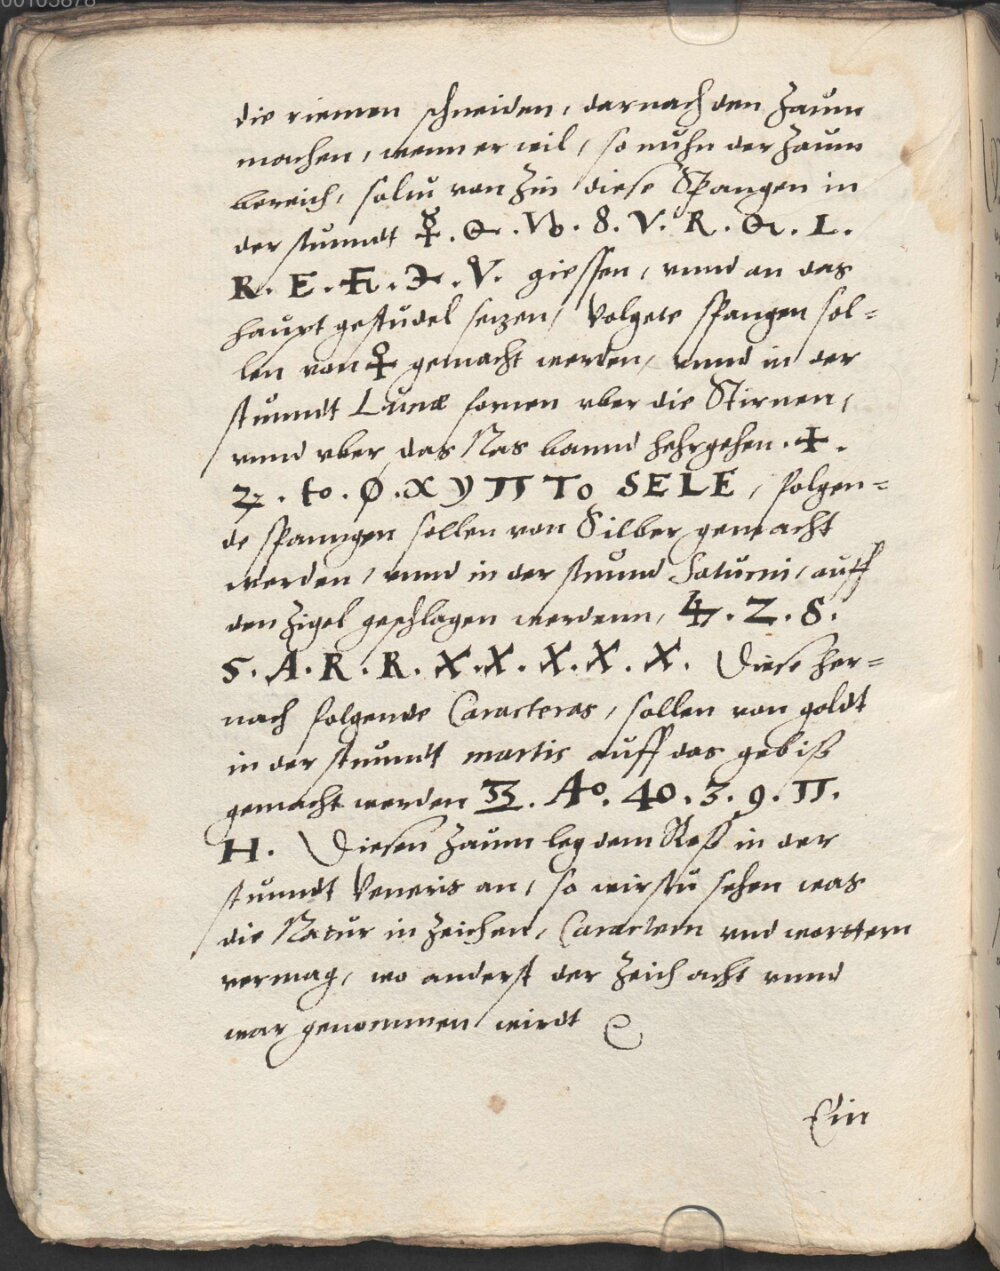 00105878
die riemen schneiden, darnach den Zaum
machen, wenn er wil, so nuhn der Zaum
bereith, soltu von Zin diese Spangen in
der stunndt ☿. . . 8. V. R. . L.
R. E. . . V. giessen, vnnd an das
haupt gestudel sezen, Volgete spangen sol=
len von ♀ gemacht werden, vnnd in der
stunndt Lunæ fornen vber die Stirnen,
vnnd vber das Nas bannd hehrgehen. ✢.
. to. Ø. X y π To SELE, folgen=
de spanngen sollen von Silber gemacht
werden, vnnd in der stunnd Saturni, auff
den Zigel geschlagen werdenn, . Z. 8.
S. A. R. R. X. X. X. X. X. Diese her=
nach folgende Caracteras, sollen von goldt
in der stunndt martis auff das gebiß
gemacht werden . A°. 40. 3. 9. π.
H. Diesen Zaum leg dem Roß in der
stunndt Veneris an, so wirstu sehen was
die Natur in Zeichen, Caractern vnd worttern
vermag, wo anderst der Zeich acht vnnd
war genommen wirdt
Ein